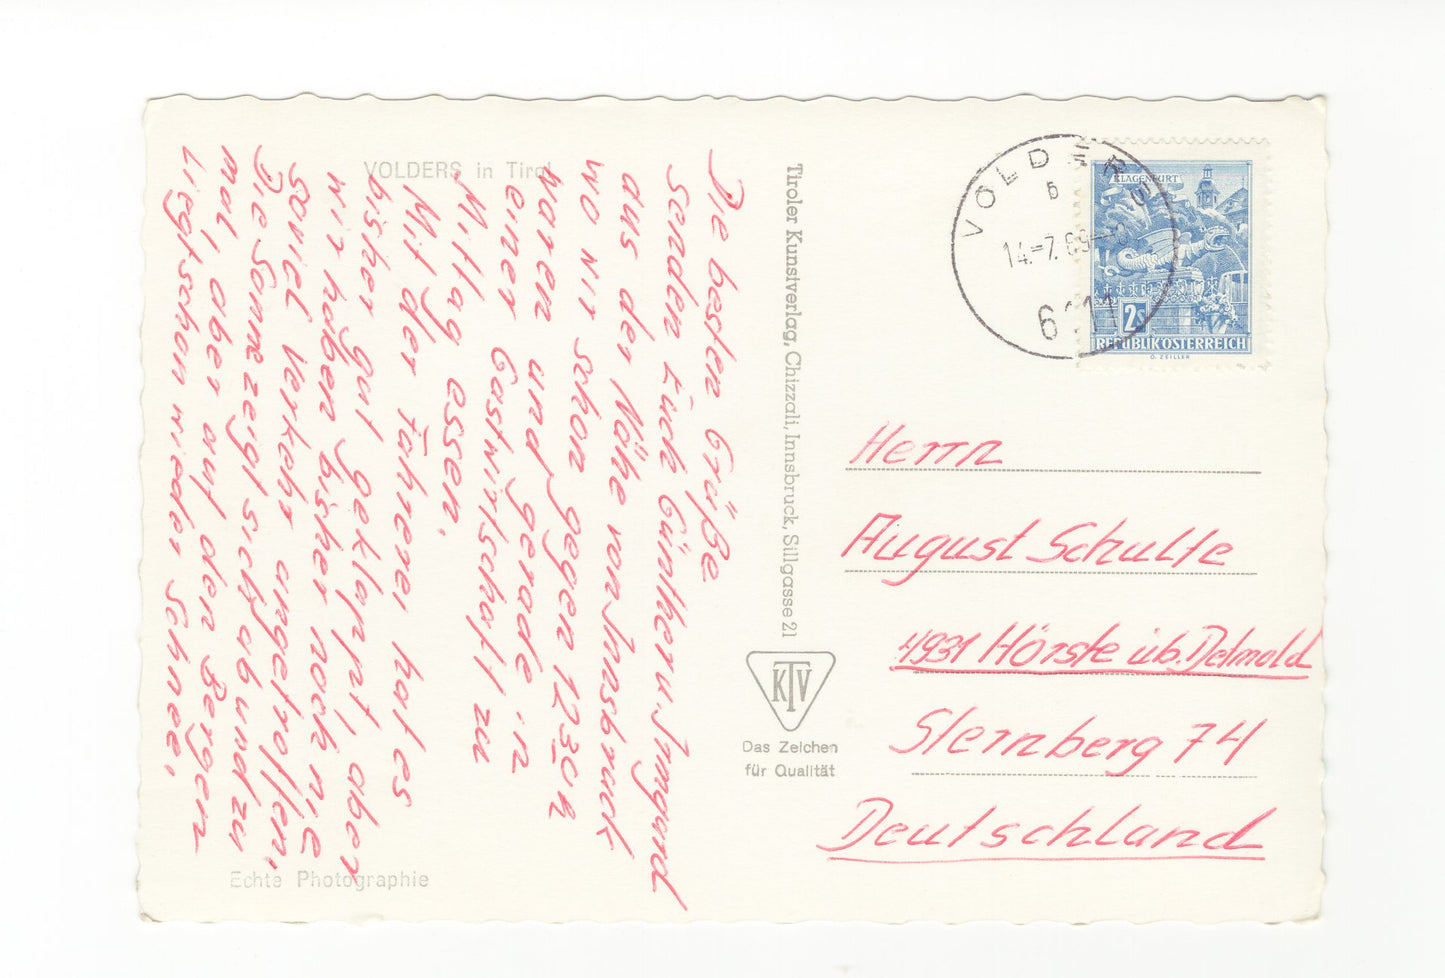 VOLDERS in Tirol
Die besten Grüße
senden Euch Günther u. Irmgard
aus der Nähe von Innsbruck
wo wir schon gegen 12 30h
waren und gerade in
einer Gastwirtschaft zu
Mittag essen.
Mit der Fahrerei hat es
bisher gut geklappt, aber
wir haben bisher noch nie
soviel Verkehr angetroffen.
Die Sonne zeigt sich ab und zu
mal, aber auf den Bergen
liegt schon wieder Schnee.
Echte Photographie
Tiroler Kunstverlag, Chizzali, Innsbruck, Sillgasse 21
KTV
Das Zeichen
für Qualität
VOLDERS
6
14.-7.69
KLAGENFURT
2s
REPUBLIK ÖSTERREICH
O. ZEILLER
Herrn
August Schulte
4931 Hörste üb. Detmold
Sternberg 74
Deutschland